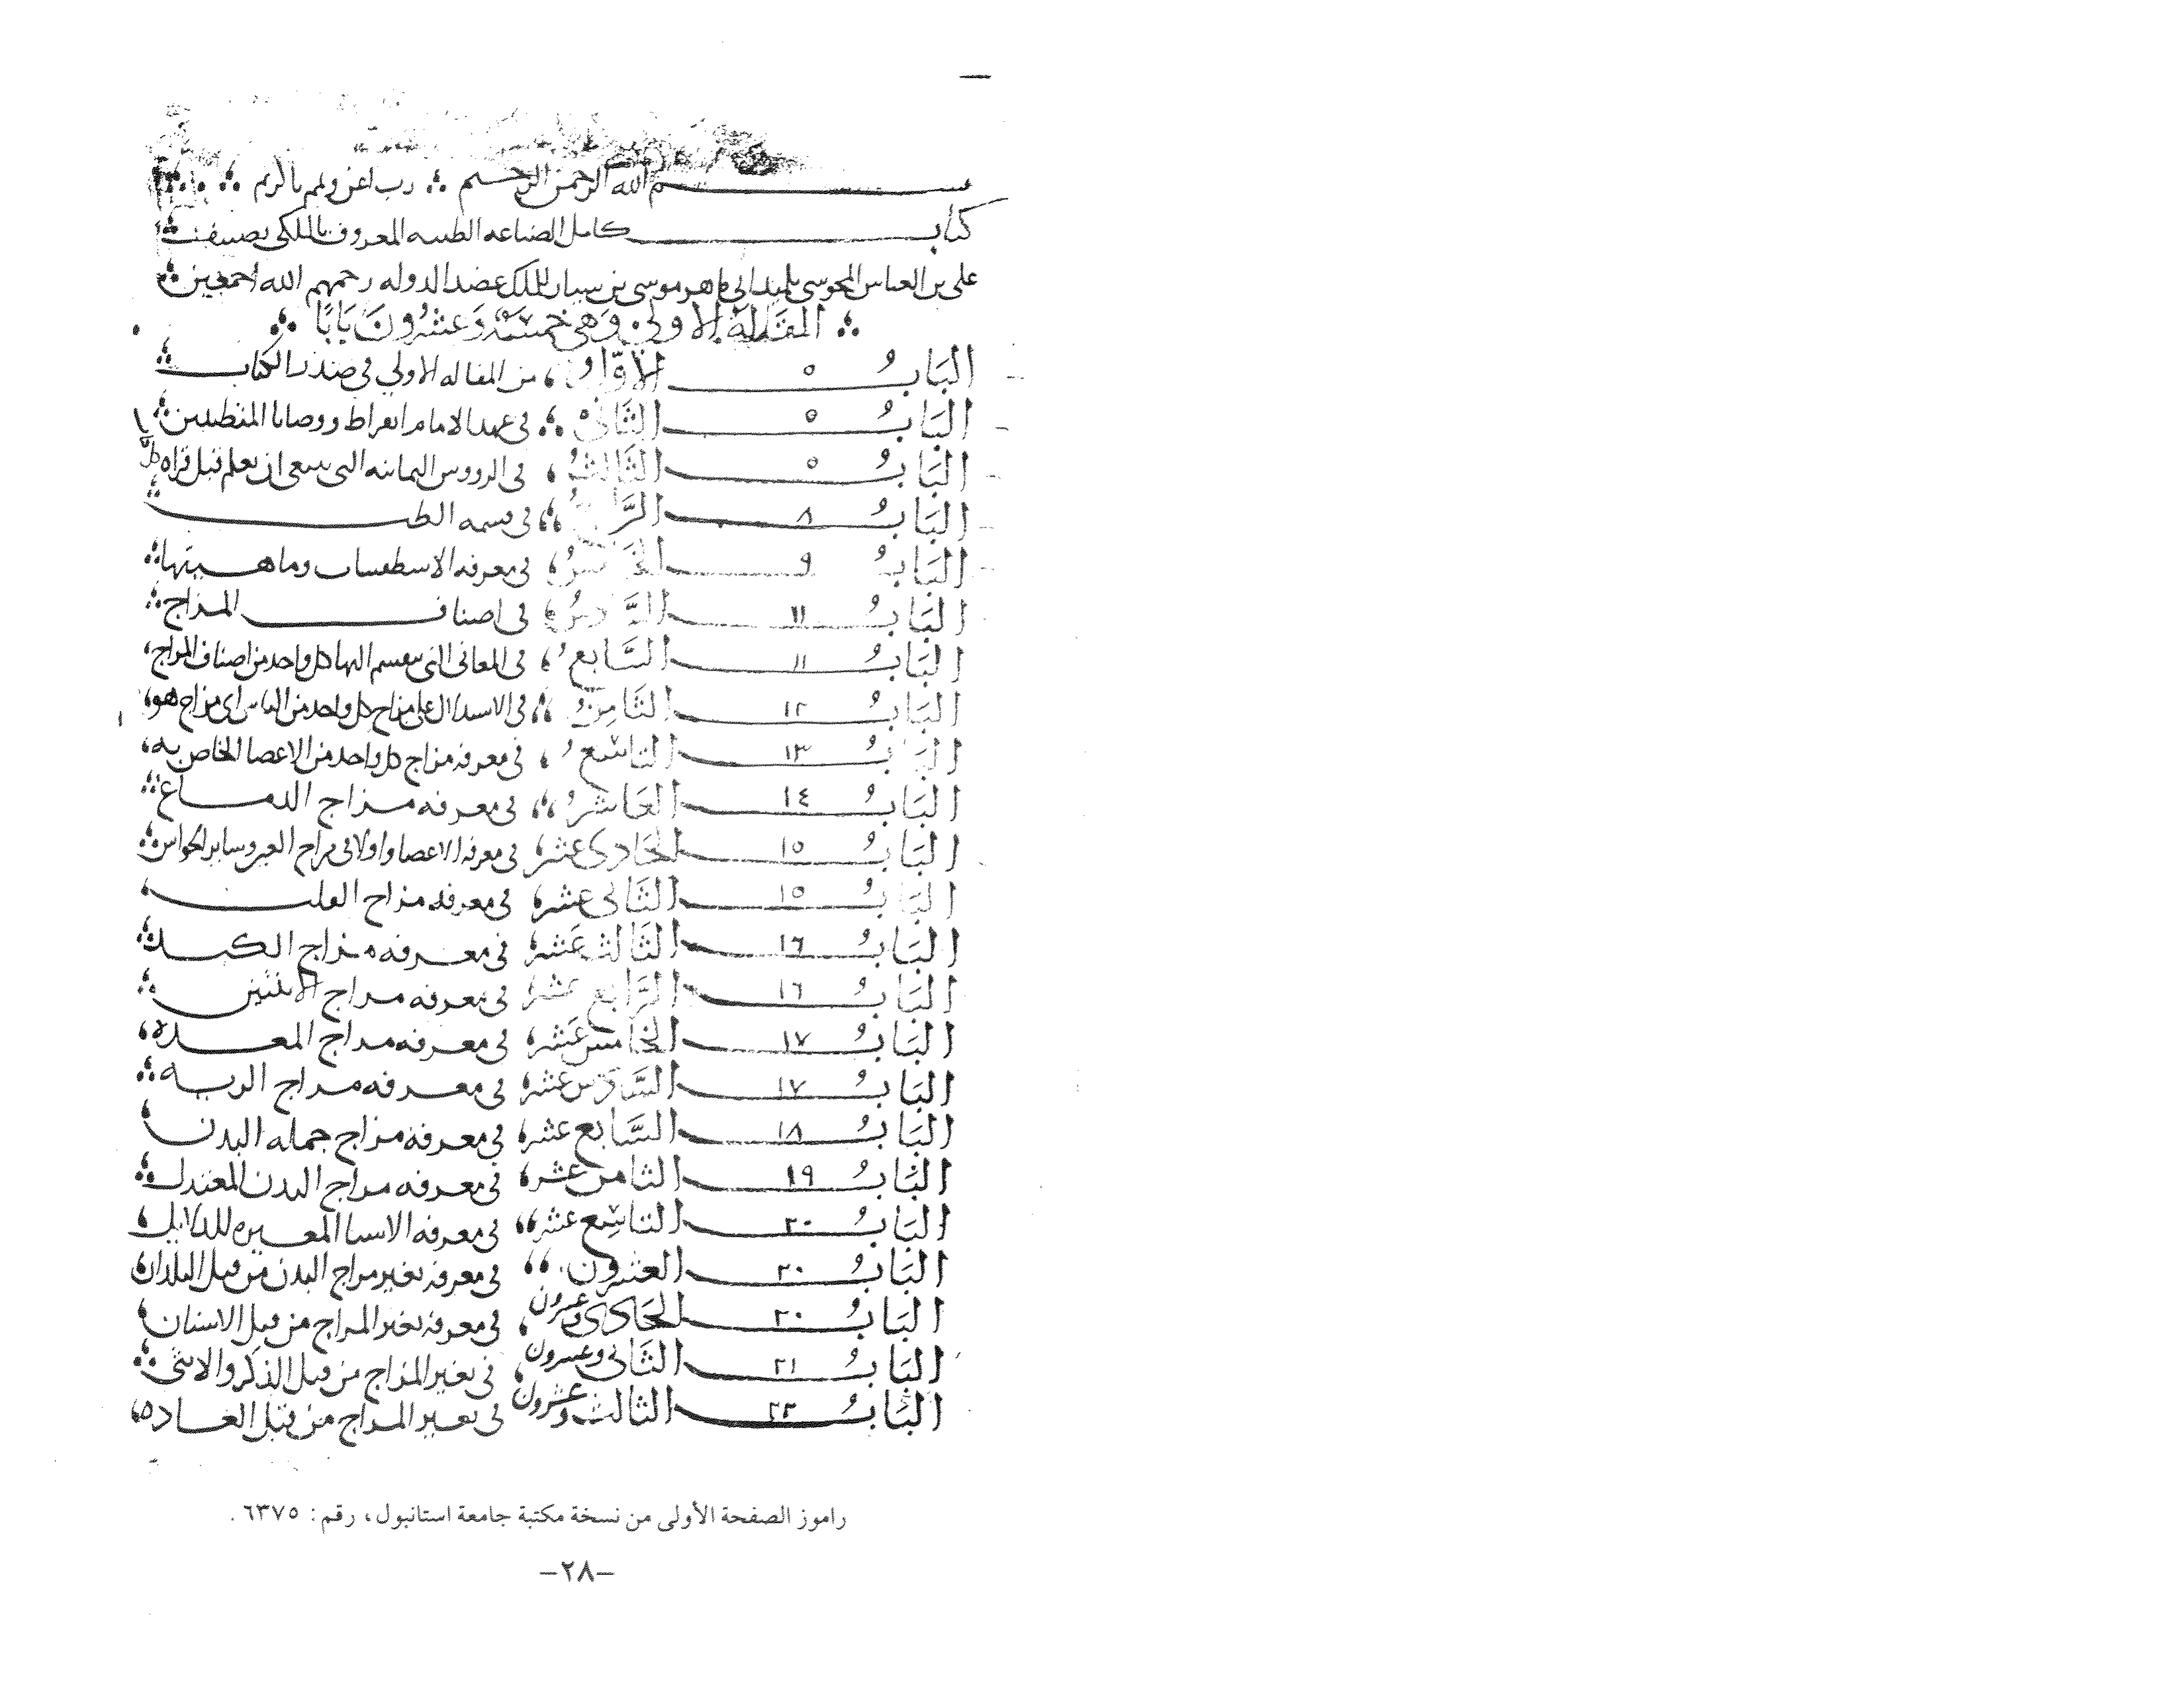 بسم الله الرحمن الرحيم رب اعن وتمم يا كريم
كتاب كامل الصناعه الطبيه المعروف بالملكي تصنيف
علي بن العباس المجوسي تلميذ ابي ماهر موسى بن سيار للملك عضد الدوله رحمهم الله اجمعين
المقالة الاولى وهي خمسة وعشرون بابا
الباب ٥ الاول من المقاله الاولى في صدر الكتاب
الباب ٥ الثاني في عهد الامام ابقراط ووصايا المتطببين
الباب ٥ الثالث في الرووس الثمانيه التي ينبغي ان تعلم قبل قراه
الباب ٨ الرابع في قسمه الطب
الباب ٩ الخامس في معرفه الاسطقسات وماهيتها
الباب ١١ السادس في اصناف المزاج
الباب ١١ السابع في المعاني التي ينقسم اليها كل واحد من اصناف المزاج
الباب ١٢ الثامن في الاستدلال على مزاج كل واحد من الناس اى مزاج هو
الباب ١٣ التاسع في معرفه مزاج كل واحد من الاعضا الخاص به
الباب ١٤ العاشر في معرفه مزاج الدماغ
الباب ١٥ الحادي عشر في معرفه الاعضا واولا في مزاج العين وساير الحواس
الباب ١٥ الثاني عشر في معرفه مزاج القلب
الباب ١٦ الثالث عشر في معرفه مزاج الكبد
الباب ١٦ الرابع عشر في معرفه مزاج الانثيين
الباب ١٧ الخامس عشر في معرفه مزاج المعده
الباب ١٧ السادس عشر في معرفه مزاج الريه
الباب ١٨ السابع عشر في معرفة مزاج جمله البدن
الباب ١٩ الثامن عشر في معرفه مزاج البدن المعتدل
الباب ٢٠ التاسع عشر في معرفه الاشيا المغيره للدلايل
الباب ٢٠ العشرون في معرفه تغير مزاج البدن من قبل البلدان
الباب ٢٠ الحادي وعشرون في معرفه تغير المزاج من قبل الاسنان
الباب ٢١ الثاني وعشرون في تغير المزاج من قبل الذكر والانثى
الباب ٢٢ الثالث وعشرون في تغير المزاج من قبل العاده
راموز الصفحة الأولى من نسخة مكتبة جامعة استانبول، رقم: ٦٣٧٥.
–٢٨–